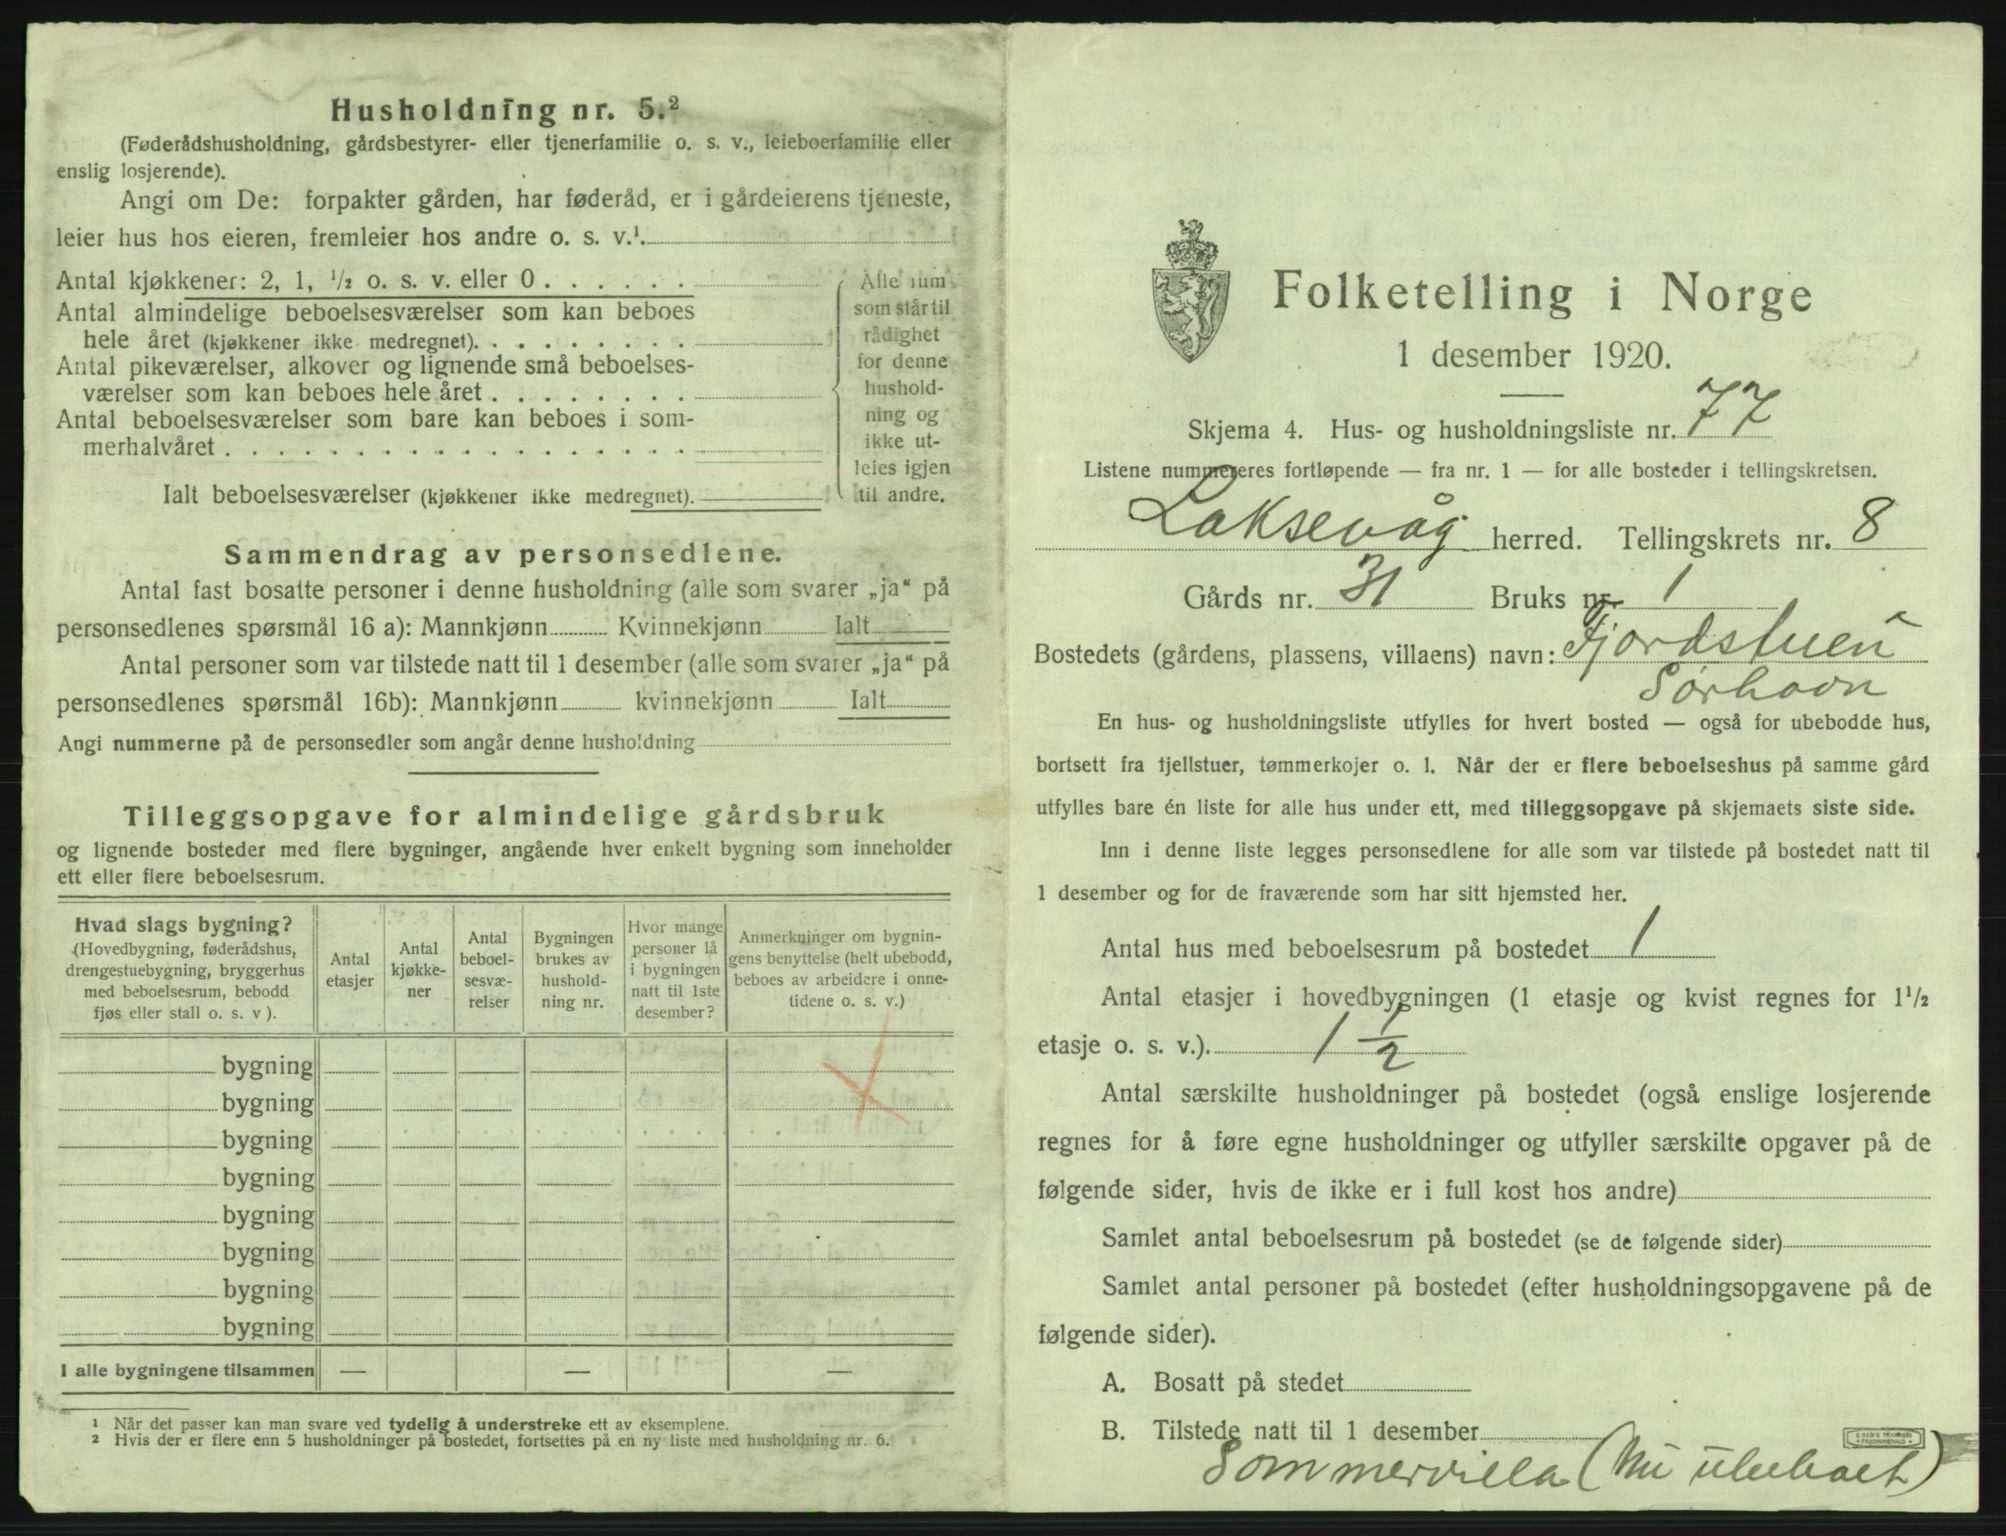 Husholdning nr. 5.²
(Føderådshusholdning, gårdsbestyrer- eller tjenerfamilie o. s. v., leieboerfamilie eller
enslig losjerende).
Angi om De: forpakter gården, har føderåd, er i gårdeierens tjeneste,
leier hus hos eieren, fremleier hos andre o. s. v.¹.
Antal kjøkkener: 2, 1, ½ o. s. v. eller 0 . . . . . .
Antal almindelige beboelsesværelser som kan beboes
hele året (kjøkkener ikke medregnet). . . . . . . . .
Antal pikeværelser, alkover og lignende små beboelses-
værelser som kan beboes hele året . . . . . . . .
Antal beboelsesværelser som bare kan beboes i som-
merhalvåret . . . . . . . . . . . . . . . . . .
Ialt beboelsesværelser (kjøkkener ikke medregnet).
Alle rum
som står til
rådighet
for denne
hushold-
ning og
ikke ut-
leies igjen
til andre.
Sammendrag av personsedlene.
Antal fast bosatte personer i denne husholdning (alle som svarer „ja“ på
personsedlenes spørsmål 16 a): Mannkjønn Kvinnekjønn Ialt
Antal personer som var tilstede natt til 1 desember (alle som svarer „ja“ på
personsedlenes spørsmål 16b): Mannkjønn kvinnekjønn Ialt
Angi nummerne på de personsedler som angår denne husholdning
Tilleggsopgave for almindelige gårdsbruk
og lignende bosteder med flere bygninger, angående hver enkelt bygning som inneholder
ett eller flere beboelsesrum.
Hvad slags bygning?
(Hovedbygning, føderådshus,
drengestuebygning, bryggerhus
med beboelsesrum, bebodd
fjøs eller stall o. s. v ).
Antal
etasjer
Antal
kjøkke-
ner
Antal
beboel-
sesvæ-
relser
Bygningen
brukes av
hushold-
ning nr.
Hvor mange
personer lå
i bygningen
natt til 1ste
desember?
Anmerkninger om bygnin-
gens benyttelse (helt ubebodd,
beboes av arbeidere i onne-
tidene o. s. v.)
bygning
bygning
bygning
bygning
bygning
bygning
bygning
bygning
I alle bygningene tilsammen — — —
¹ Når det passer kan man svare ved tydelig å understreke ett av eksemplene.
² Hvis der er flere enn 5 husholdninger på bostedet, fortsettes på en ny liste med husholdning nr. 6.
Folketelling i Norge
1 desember 1920.
Skjema 4. Hus- og husholdningsliste nr. 77
Listene nummereres fortløpende — fra nr. 1 — for alle bosteder i tellingskretsen.
Laksevåg herred. Tellingskrets nr. 8
Gårds nr. 31 Bruks nr. 1
Bostedets (gårdens, plassens, villaens) navn: Fjordstuen
Sørhavn
En hus- og husholdningsliste utfylles for hvert bosted — også for ubebodde hus,
bortsett fra fjellstuer, tømmerkojer o. l. Når der er flere beboelseshus på samme gård
utfylles bare én liste for alle hus under ett, med tilleggsopgave på skjemaets siste side.
Inn i denne liste legges personsedlene for alle som var tilstede på bostedet natt til
1 desember og for de fraværende som har sitt hjemsted her.
Antal hus med beboelsesrum på bostedet 1
Antal etasjer i hovedbygningen (1 etasje og kvist regnes for 1½
etasje o. s. v.). 1 ½
Antal særskilte husholdninger på bostedet (også enslige losjerende
regnes for å føre egne husholdninger og utfyller særskilte opgaver på de
følgende sider, hvis de ikke er i full kost hos andre)
Samlet antal beboelsesrum på bostedet (se de følgende sider)
Samlet antal personer på bostedet (efter husholdningsopgavene på de
følgende sider).
A. Bosatt på stedet
B. Tilstede natt til 1 desember
Sommervilla (Nu ubeboet)